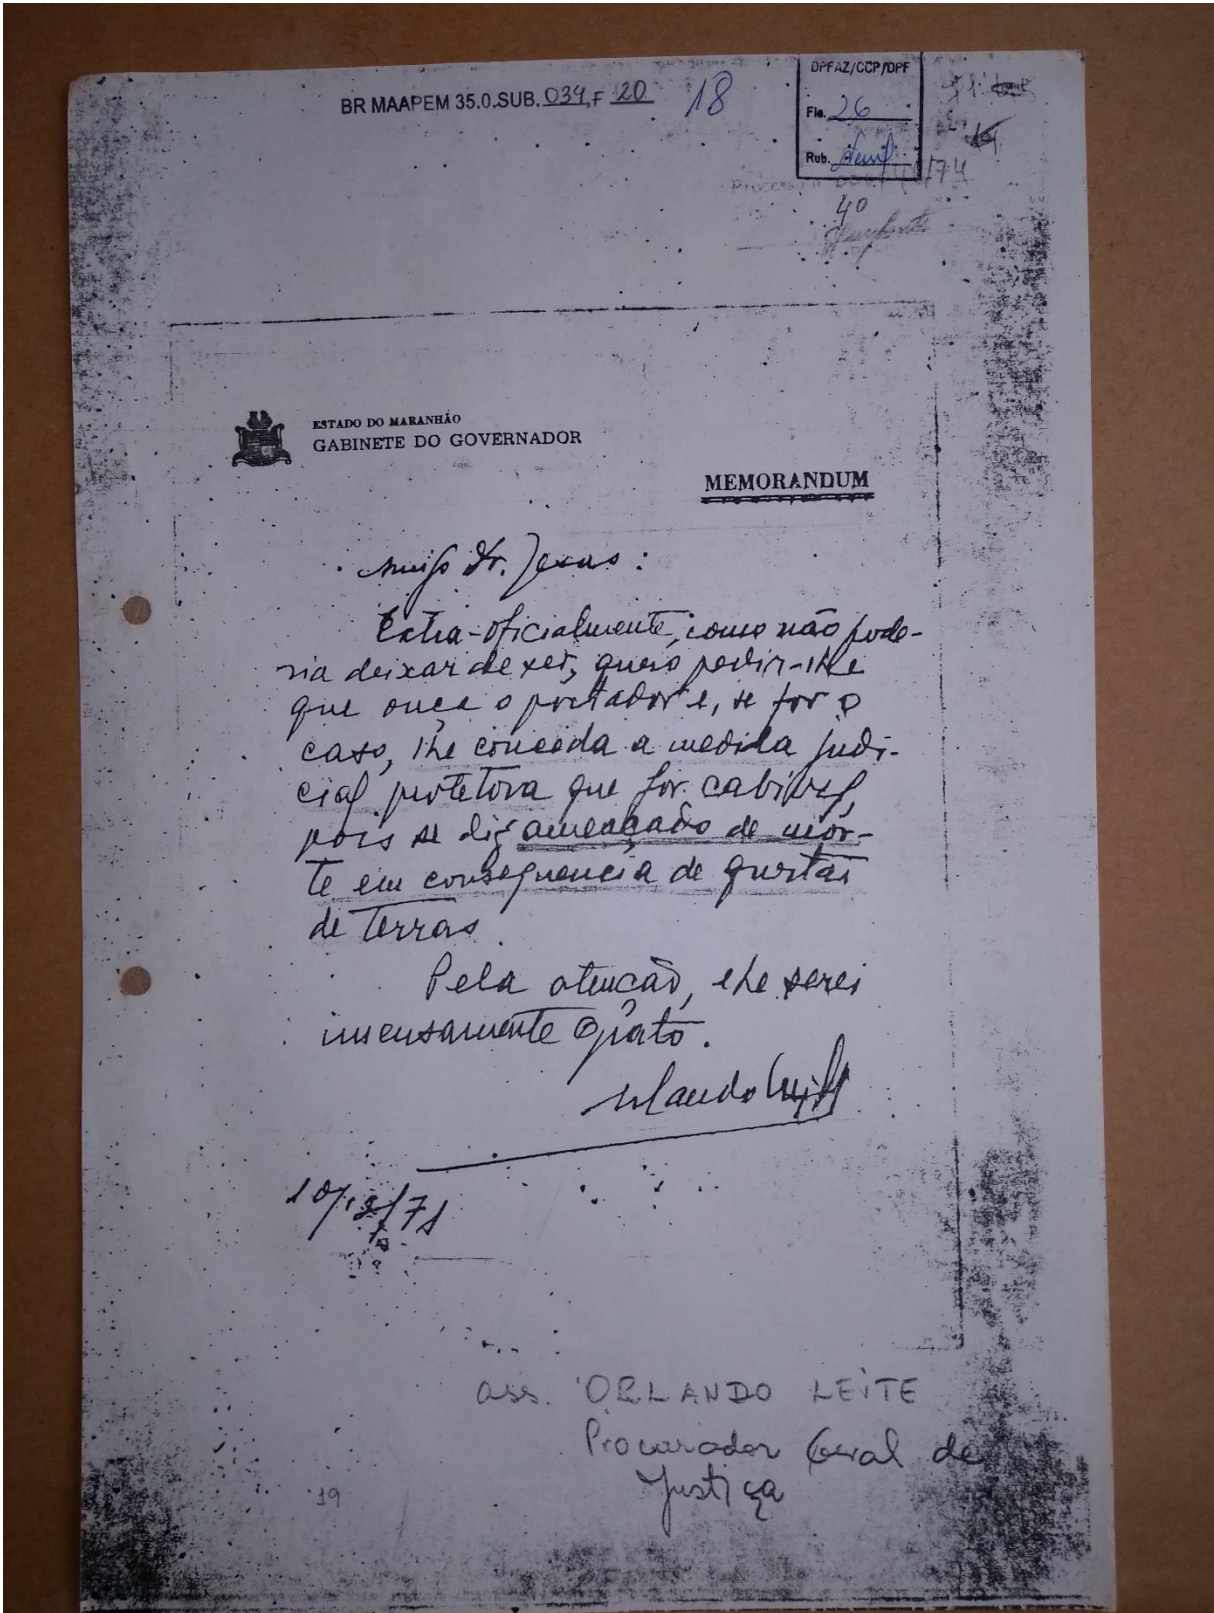 BR MAAPEM 35.0.SUB. 034, F 20
18
DPFAZ/CCP/DPF
Fls. 26
Rub.
/74
40
ESTADO DO MARANHÃO
GABINETE DO GOVERNADOR
MEMORANDUM
Amigo Dr. Jesus:
Extra-oficialmente, como não pode-
ria deixar de ser, quero pedir-lhe
que ouça o portador e, se for o
caso, lhe conceda a medida judi-
cial protetora que for cabivel,
pois se diz ameaçado de mór-
te em consequencia de questas
de terras.
Pela atenção, lhe serei
imensamente grato.
Orlando Leite
10/12/71
ass. ORLANDO LEITE
Procurador Geral de
Justiça
19